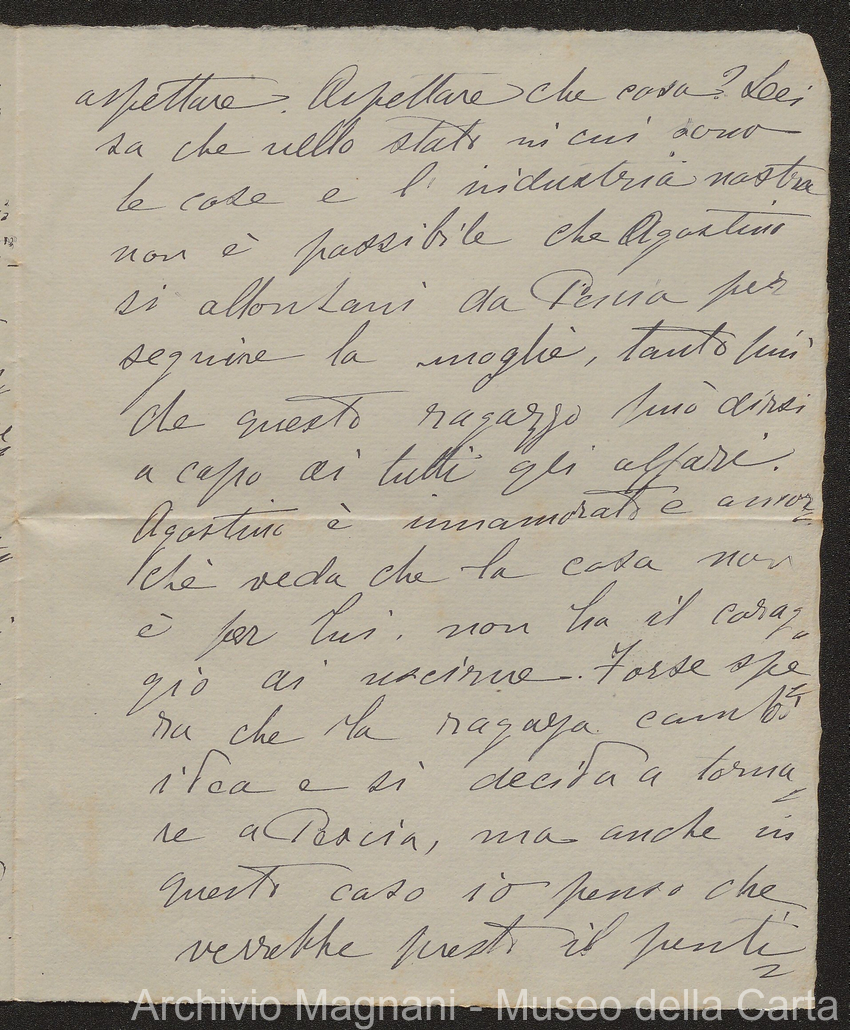 aspettare. Aspettare che cosa? Lei
sa che nello stato in cui sono
le cose e l'industria nostra
non è possibile che Agostino
si allontani da Pescia per
seguire la moglie, tanto più
che questo ragazzo può dirsi
a capo di tutti gli affari.
Agostino è innamorato e
chè veda che la cosa non
è per lui, non ha il corag=
gio di uscirne. Forse spe=
ra che la ragazza cambi
idea e si decida a torna=
re a Pescia, ma anche in
questo caso io penso che
verrebbe presto il penti=
Archivio Magnani - Museo della Carta